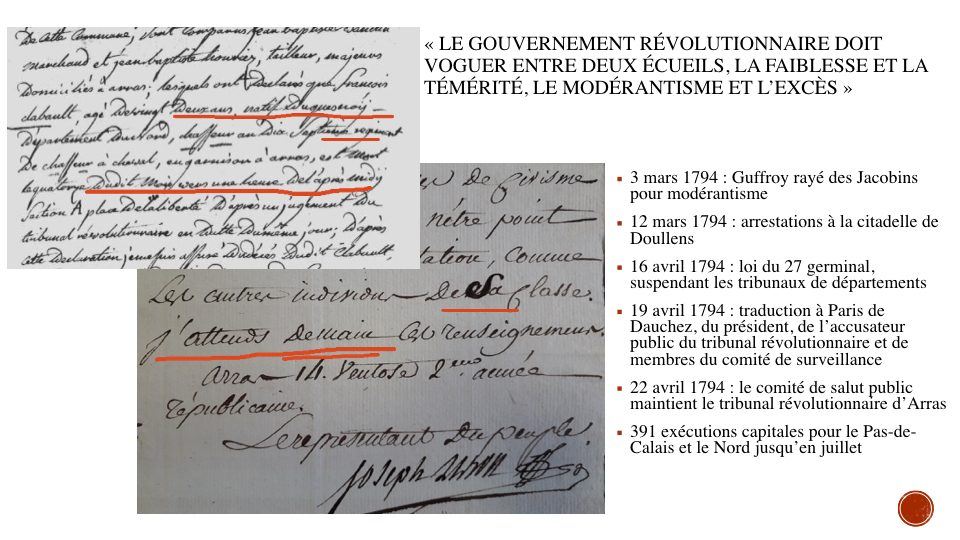 « LE GOUVERNEMENT RÉVOLUTIONNAIRE DOIT
VOGUER ENTRE DEUX ÉCUEILS, LA FAIBLESSE ET LA
TÉMÉRITÉ, LE MODÉRANTISME ET L’EXCÈS »
De cette Commune, sont comparus jean baptiste
marchand et jean baptiste tailleur, majeurs
Domiciliés à arras, lesquels ont Declaré que françois
clabault, agé De vingt Deux ans, natif Duquesnoij
Département Du nord, chasseur au Dix Septieme regiment
De chasseur à cheval, en garnison à arras, est mort
le quatorze Dudit mois, vers une heure De l'après midij
Section A place De la liberté D'après un jugement Du
tribunal révolutionnaire en Datte Du même jour; D'après
cette Declaration, je me suis assuré Du décès Dudit Clabault,
De Civisme
nétre point
tation, Comme
Les autres individus De Sa Classe.
j'attends Demain Ces renseignemens.
Arras 14. Ventose 2.eme année
républicaine.
Le representant Du peuple.
Joseph Lebon
▪ 3 mars 1794 : Guffroy rayé des Jacobins
pour modérantisme
▪ 12 mars 1794 : arrestations à la citadelle de
Doullens
▪ 16 avril 1794 : loi du 27 germinal,
suspendant les tribunaux de départements
▪ 19 avril 1794 : traduction à Paris de
Dauchez, du président, de l’accusateur
public du tribunal révolutionnaire et de
membres du comité de surveillance
▪ 22 avril 1794 : le comité de salut public
maintient le tribunal révolutionnaire d’Arras
▪ 391 exécutions capitales pour le Pas-de-
Calais et le Nord jusqu’en juillet